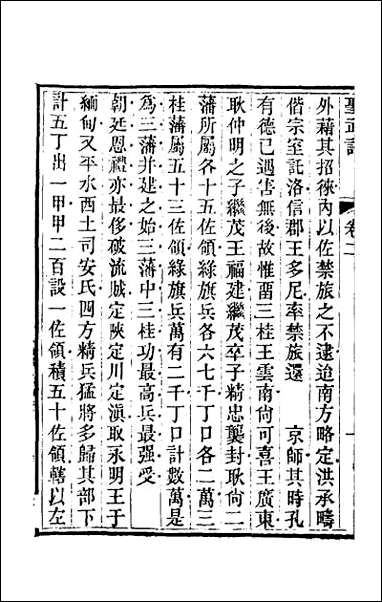 聖武記
卷二
一
外藉其招徠內以佐禁旅之不逮迨南方略定洪承疇
偕宗室託洛信郡王多尼率禁旅還 京師其時孔
有德已遇害無後故惟畱三桂王雲南尚可喜王廣東
耿仲明之子繼茂王福建繼茂卒子精忠襲封耿尚二
藩所屬各十五佐領綠旗兵各六七千丁口各二萬三
桂藩屬五十三佐領綠旗兵萬有二千丁口計數萬是
爲三藩并建之始三藩中三桂功最高兵最强受
朝廷恩禮亦最侈破流賊定陝定川定滇取永明王于
緬甸又平水西土司安氏四方精兵猛將多歸其部下
計五丁出一甲甲二百設一佐領積五十佐領轄以左